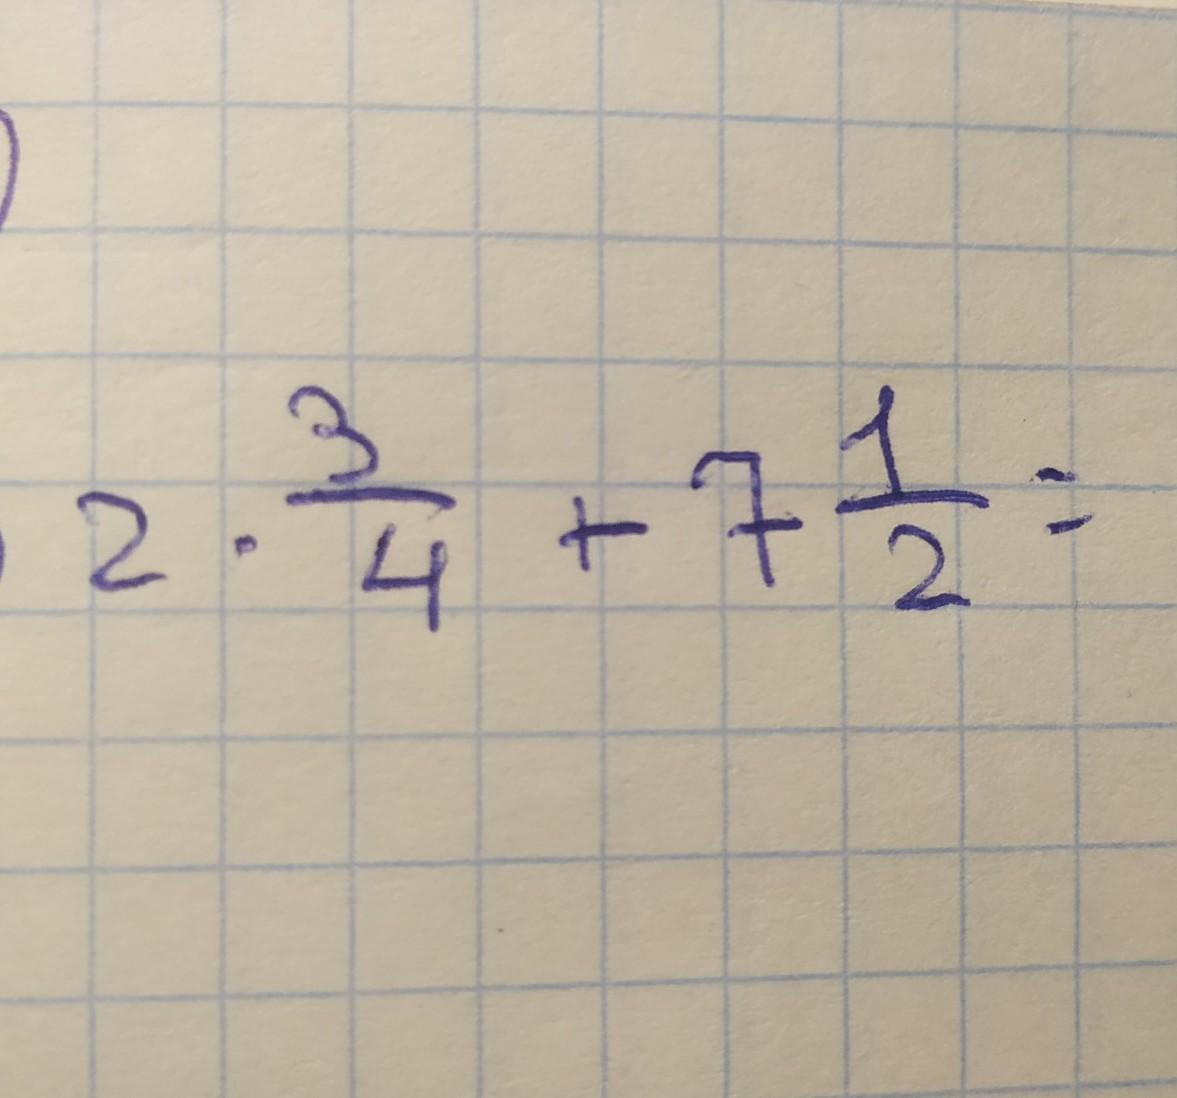 2 · 3/4 + 7 1/2 =